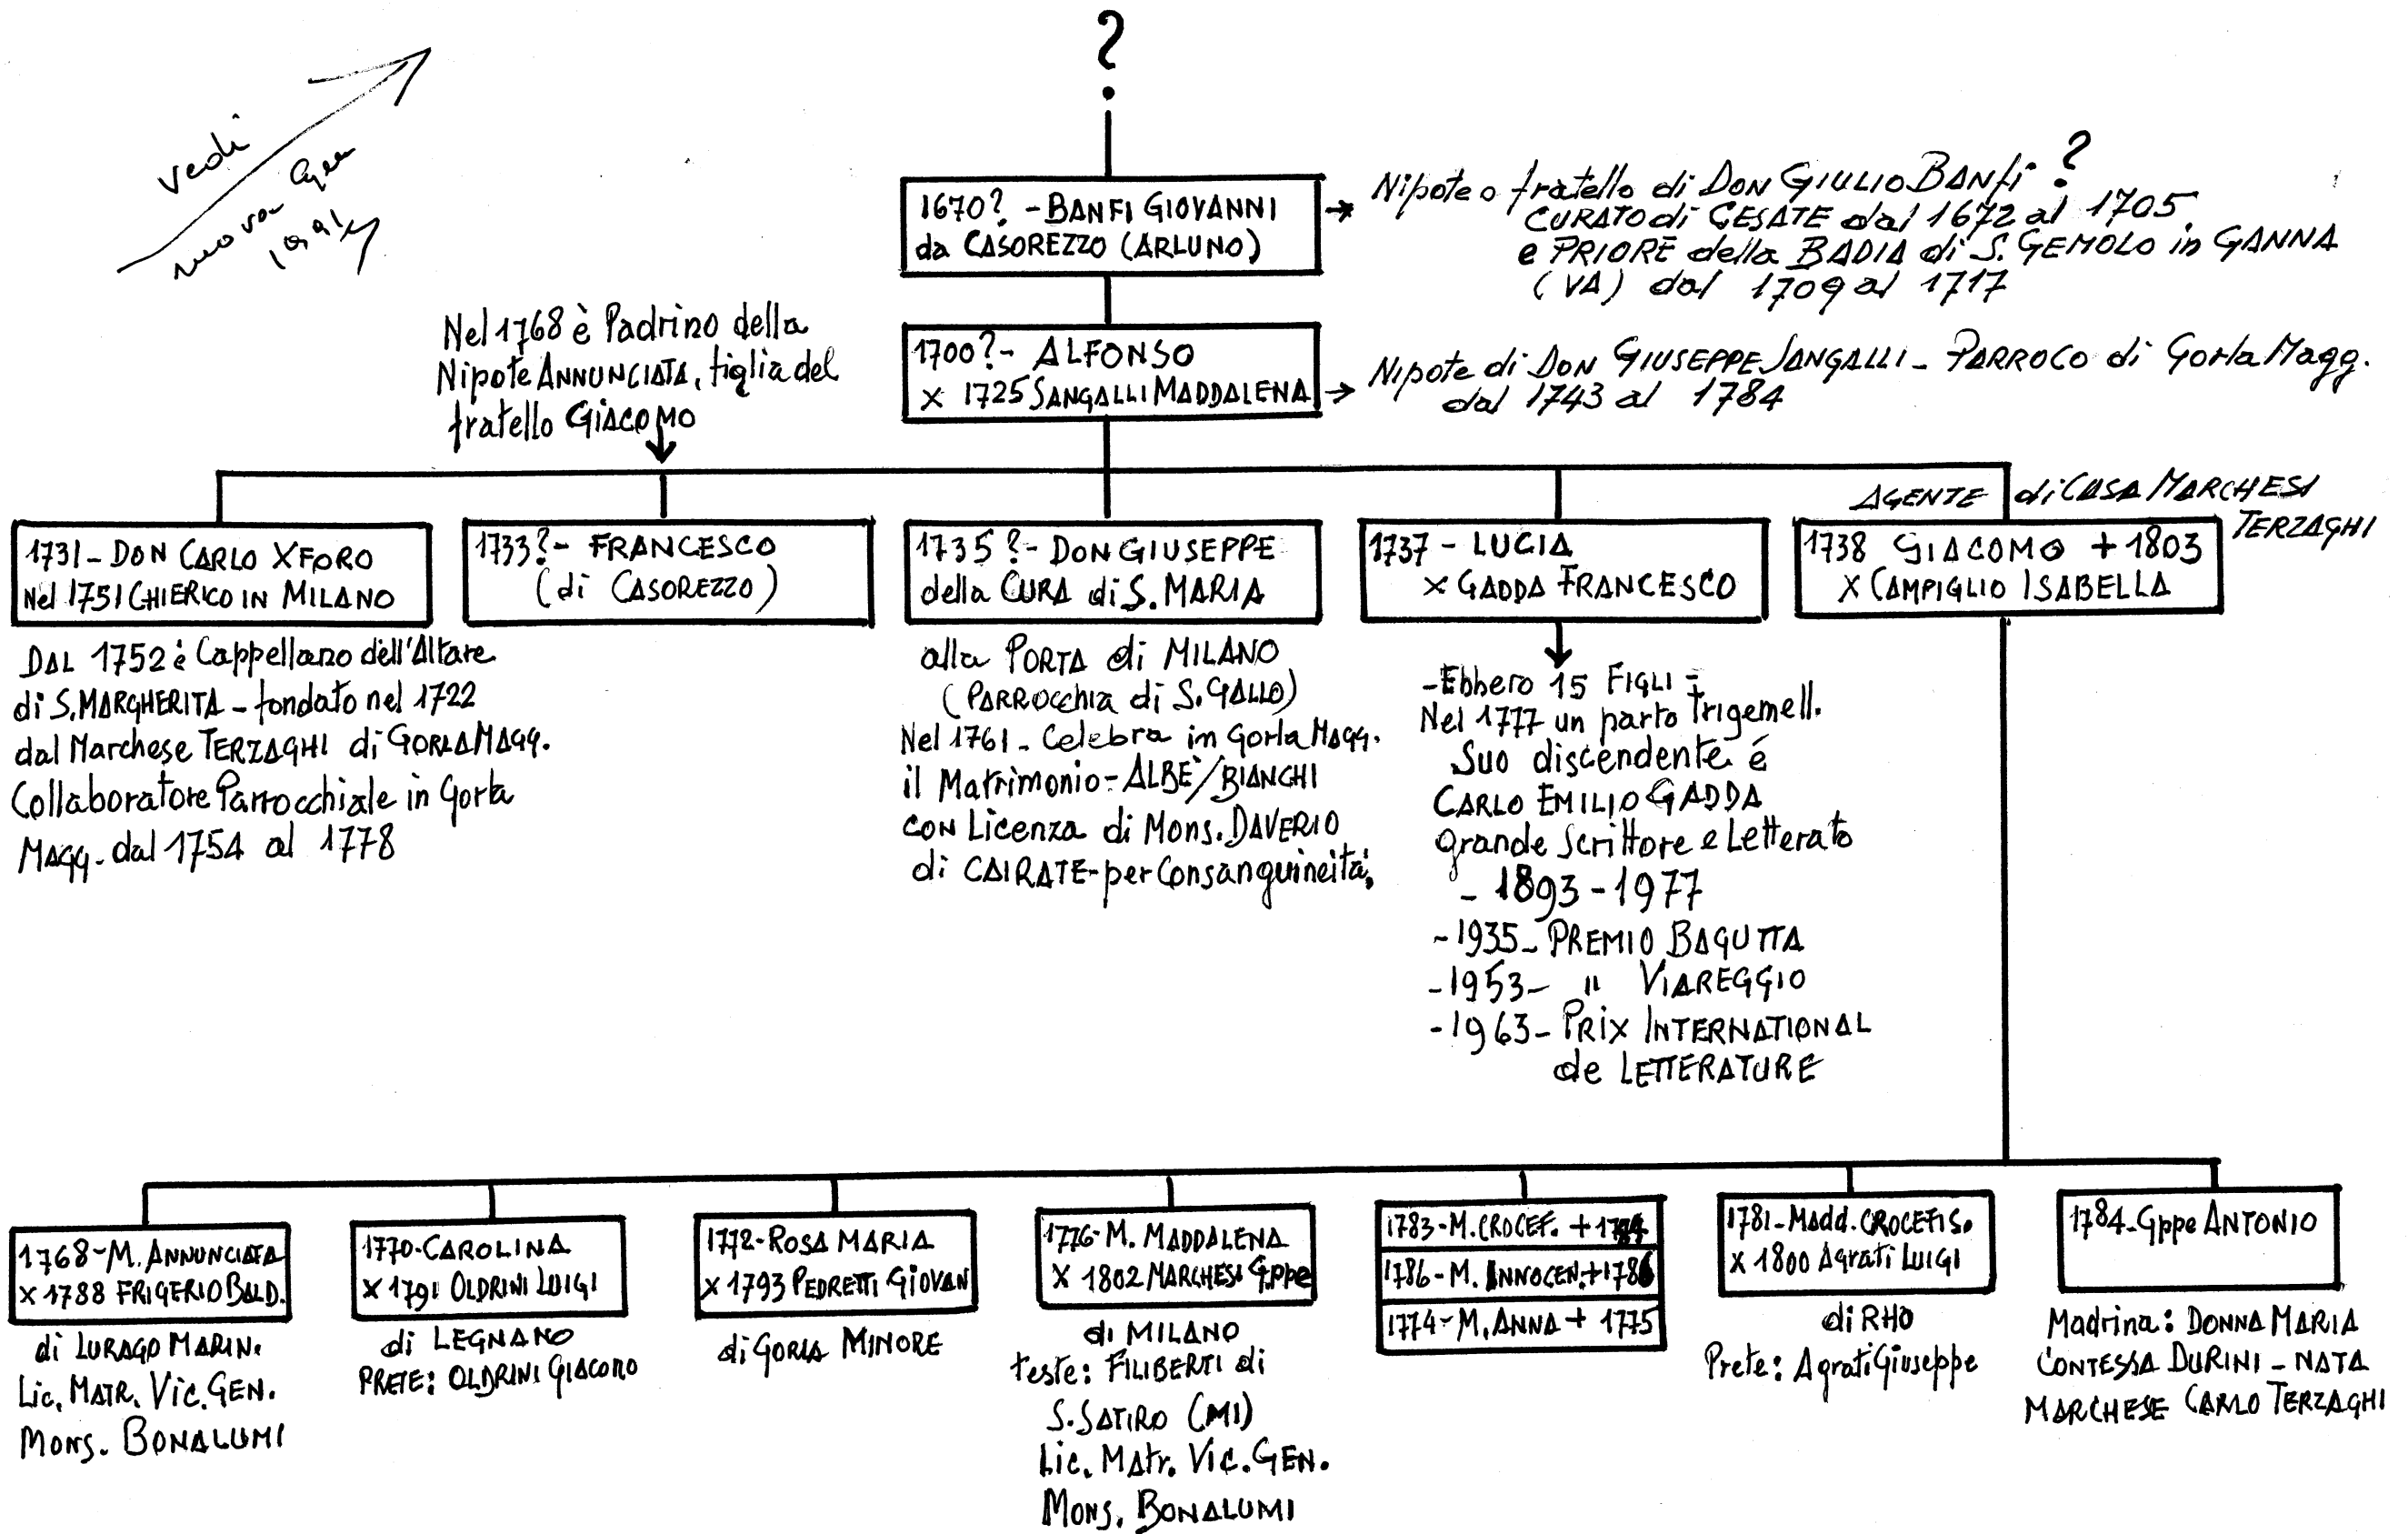 ?
vedi
nuova
1670? - BANFI GIOVANNI
da CASOREZZO (ARLUNO)
Nipote o fratello di DON GIULIO BANFI ?
CURATO di CESATE dal 1672 al 1705
e PRIORE della BADIA di S. GEMOLO in GANNA
(VA) dal 1709 al 1717
Nel 1768 è Padrino della
Nipote ANNUNCIATA, figlia del
fratello GIACOMO
1700? - ALFONSO
x 1725 SANGALLI MADDALENA
Nipote di DON GIUSEPPE SANGALLI - PARROCO di Gorla Magg.
dal 1743 al 1784
AGENTE di CASA MARCHESI
TERZAGHI
1731 - DON CARLO XFORO
Nel 1751 CHIERICO IN MILANO
DAL 1752 è Cappellano dell'Altare
di S. MARGHERITA - fondato nel 1722
dal Marchese TERZAGHI di GORLA MAGG.
Collaboratore Parrocchiale in Gorla
MAGG. dal 1754 al 1778
1733? - FRANCESCO
(di CASOREZZO)
1735? - DON GIUSEPPE
della CURA di S. MARIA
alla PORTA di MILANO
(PARROCCHIA di S. GALLO)
Nel 1761 - Celebra in Gorla MAGG.
il Matrimonio - ALBE'/BIANCHI
CON Licenza di Mons. DAVERIO
di CAIRATE - per Consanguineità,
1737 - LUCIA
x GADDA FRANCESCO
- Ebbero 15 FIGLI -
Nel 1777 un parto Trigemell.
Suo discendente é
CARLO EMILIO GADDA
grande Scrittore e Letterato
- 1893 - 1977
- 1935 - PREMIO BAGUTTA
- 1953 - " VIAREGGIO
- 1963 - PRIX INTERNATIONAL
de LETTERATURE
1738 GIACOMO + 1803
x CAMPIGLIO ISABELLA
1768 - M. ANNUNCIATA
x 1788 FRIGERIO BALD.
di LURAGO MARIN.
Lic. MATR. Vic. GEN.
MONS. BONALUMI
1770 - CAROLINA
x 1791 OLDRINI LUIGI
di LEGNANO
PRETE: OLDRINI GIACOMO
1772 - ROSA MARIA
x 1793 PEDRETTI GIOVAN
di GORLA MINORE
1776 - M. MADDALENA
x 1802 MARCHESI G.ppe
di MILANO
teste: FILIBERTI di
S. SATIRO (MI)
Lic. MATr. Vic. GEN.
MONS. BONALUMI
1783 - M. CROCEF. + 1784
1786 - M. INNOCEN. + 1786
1774 - M. ANNA + 1775
1781 - MAdd. CROCEFISO
x 1800 Agrati LUIGI
di RHO
Prete: Agrati Giuseppe
1784 - Gppe ANTONIO
Madrina: DONNA MARIA
CONTESSA DURINI - NATA
MARCHESE CARLO TERZAGHI